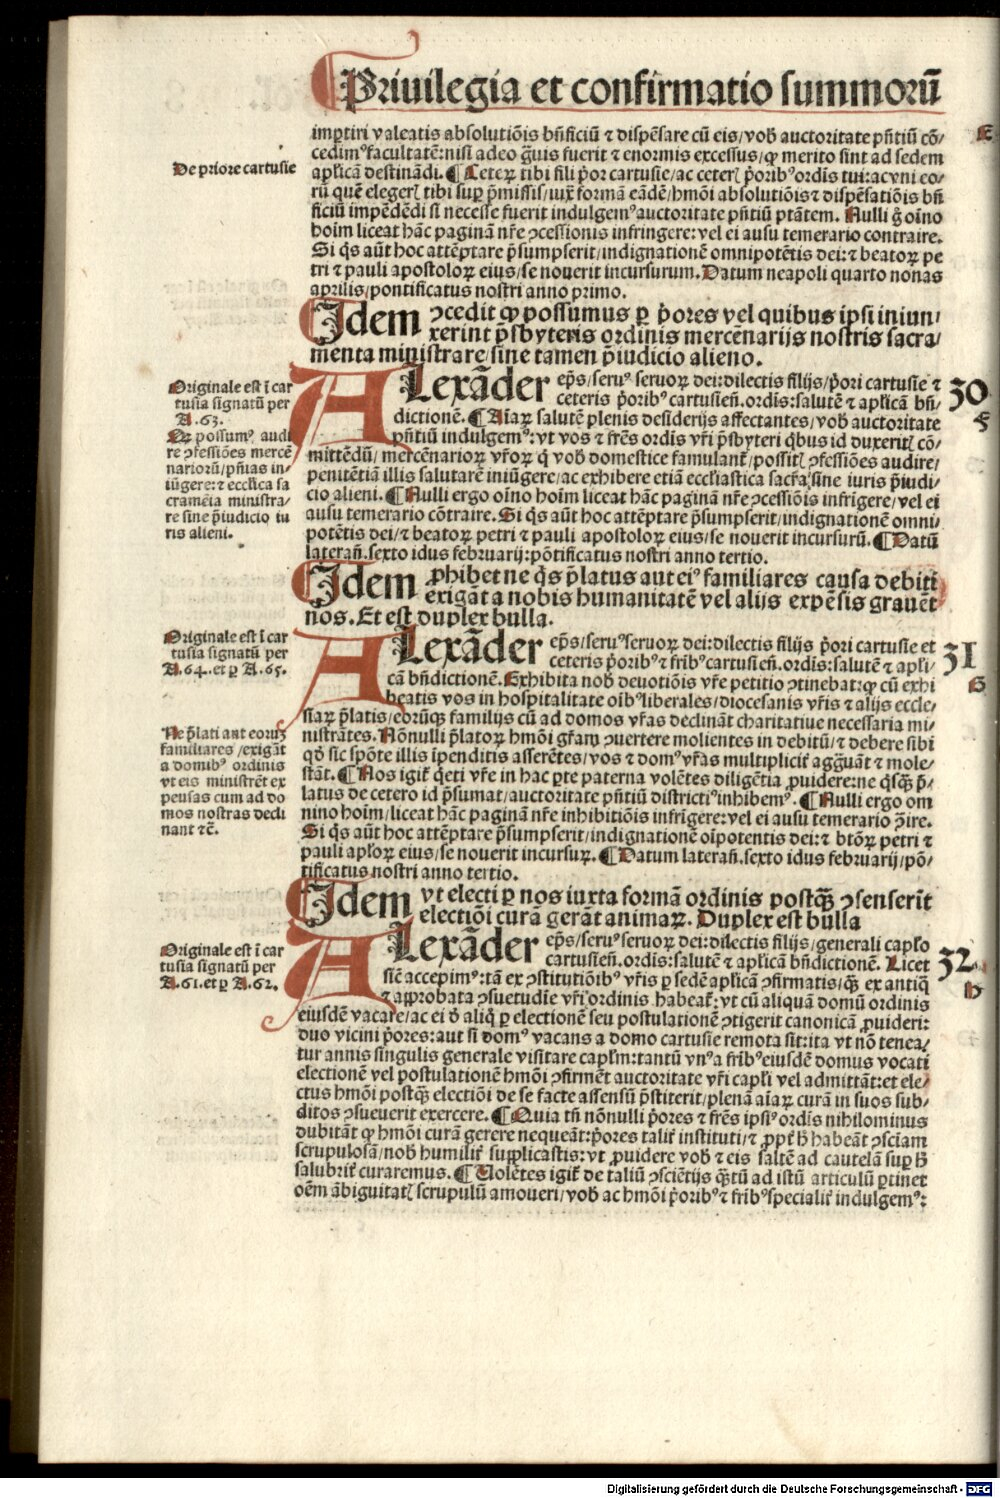 Priuilegia et confirmatio summorū
impertiri valeatis absolutiōis bn̄ficiū ⁊ dispēsare cū eis/vob auctoritate pn̄tiū cō/
cedimꝰ facultatē: nisi adeo g̃uis fuerit ⁊ enormis excessus/ꝙ merito sint ad sedem
De priore cartusie
ap̄licā destinādi. ¶ Ceteꝝ tibi fili p̄or cartusie/ac ceteri p̄oribꝰ ordīs tui: ac vni eo/
rū quē elegeri tibi suꝑ p̄missis/iux̄ formā eādē/hmōi absolutiōis ⁊ dispēsatiōis bn̄
ficiū impēdēdi si necesse fuerit indulgemꝰ auctoritate pn̄tiū ptātem. Nulli g̊ oīno
hoīm liceat hāc paginā nr̄e ꝯcessionis infringere: vel ei ausu temerario contraire.
Si q̄s aūt hoc attēptare p̄sumpserit/indignationē omnipotētis dei: ⁊ beatoꝝ pe
tri ⁊ pauli apostoloꝝ eius/se nouerit incursurum. Datum neapoli quarto nonas
aprilis/pontificatus nostri anno primo.
Idem ꝯcedit ꝙ possumus ꝑ p̄ores vel quibus ipsi iniun/
xerint p̄sbyteris ordinis mercēnarijs nostris sacra/
menta ministrare/sine tamen p̄iudicio alieno.
Originale est ī car
tusia signatū per
A .63.
Qꝫ possumꝰ audi
re ꝯfessiões mercē
nariorū/pn̄ias in/
iūgere: ⁊ ecclīca sa
cramēta ministra/
re sine p̄iudicio iu
ris alieni.
30
F
Alexāder ep̄s/seruꝰ seruoꝝ dei: dilectis filijs/p̄ori cartusie ⁊
ceteris p̄oribꝰ cartusien̄. ordīs: salutē ⁊ ap̄licā bn̄/
dictionē. ¶ Aīaꝝ salutē plenis desiderijs affectantes/vob auctoritate
pn̄tiū indulgemꝰ: vt vos ⁊ fr̄es ordīs vr̄i p̄sbyteri q̄bus id duxeriti cō/
mittēdū/mercēnarioꝝ vr̄oꝝ q̄ vob domestice famulant̄/possiti ꝯfessiões audire/
penitētiā illis salutarē iniūgere/ac exhibere etiā eccl̄iastica sacr̄a/sine iuris p̄iudi/
cio alieni. ¶ Nulli ergo oīno hoīm liceat hāc paginā nr̄e ꝯcessiōis infrīgere/vel ei
ausu temerario cōtraire. Si q̄s aūt hoc attēptare p̄sumpserit/indignationē omni/
potētis dei/⁊ beatoꝝ petri ⁊ pauli apostoloꝝ eius/se nouerit incursurū. ¶ Datū
lateran̄. sexto idus februarij: pōtificatus nostri anno tertio.
Idem ꝓhibet ne q̄s p̄latus aut eiꝰ familiares causa debiti
exigāt a nobis humanitatē vel alijs expēsis grauēt
nos. Et est duplex bulla.
Originale est ī car
tusia signatū per
A .64. et ꝑ A .65.
Ne p̄lati aut eorūꝫ
familiares/exigāt
a domibꝰ ordinis
vt eis ministrēt ex
pensas cum ad do
mos nostras decli
nant ⁊c̄.
31
G
Alexāder ep̄s/seruꝰ seruoꝝ dei: dilectis filijs p̄ori cartusie et
ceteris p̄oribꝰ ⁊ fribꝰ cartusien̄. ordīs: salutē ⁊ apl̄i/
cā bn̄dictionē. Exhibita nob deuotiōis vr̄e petitio ꝯtinebat: ꝙ cū exhi
beatis vos in hospitalitate oībꝰ liberales/diocesanis vr̄is ⁊ alijs eccle/
siaꝝ p̄latis/eorūqꝫ familijs cū ad domos vr̄as declināt charitatiue necessaria mi/
nistrātes. Nōnulli p̄latoꝝ hmōi gr̄am ꝯuertere molientes in debitū/⁊ debere sibi
qd̄ sic spōte illis īpenditis asserētes/vos ⁊ domꝰ vr̄as multiplicir̄ agg̃uāt ⁊ mole/
stāt. ¶ Nos igir̄ q̄eti vr̄e in hac ꝑte paterna volētes diligētia ꝓuidere: ne q̄sq̄ꝫ p̄/
latus de cetero id p̄sumat/auctoritate pn̄tiū districtiꝰ inhibemꝰ. ¶ Nulli ergo om
nino hoīm/liceat hāc paginā nr̄e inhibitiōis infrigere: vel ei ausu temerario ꝯ̄ire.
Si q̄s aūt hoc attēptare p̄sumpserit/indignationē oīpotentis dei: ⁊ btōꝝ petri ⁊
pauli apl̄oꝝ eius/se nouerit incursuꝝ. ¶ Datum lateran̄. sexto idus februarij/pō/
tificatus nostri anno tertio.
Idem vt electi ꝑ nos iuxta formā ordinis postq̄ꝫ ꝯsenserīt
electiōi curā gerāt animaꝝ. Duplex est bulla
Originale est ī car
tusia signatū per
A .61. et ꝑ A .62.
32
H
Alexāder ep̄s/seruꝰ seruoꝝ dei: dilectis filijs/generali capl̄o
cartusien̄. ordīs: salutē ⁊ ap̄licā bn̄dictionē. Licet
siē accepimꝰ: tā ex ꝯstitutiōibꝰ vr̄is ꝑ sedē ap̄licā ꝯfirmatis/q̄ꝫ ex antiq̄
⁊ approbata ꝯsuetudīe vr̄i ordinis habeat̄: vt cū aliquā domū ordinis
eiusdē vacare/ac ei d̄ aliq̄ ꝑ electionē seu postulationē ꝯtigerit canonicā ꝓuideri:
duo vicini p̄ores: aut si domꝰ vacans a domo cartusie remota sit: ita vt nō tenea/
tur annis singulis generale visitare capl̄m: tantū vnꝰ a fribꝰ eiusdē domus vocati
electionē vel postulationē hmōi ꝯfirmēt auctoritate vr̄i capl̄i vel admittāt: et ele/
ctus hmōi postq̄ꝫ electiōi de se facte assensū p̄stiterit/plenā aīaꝝ curā in suos sub/
ditos ꝯsueuerit exercere. ¶ Quia tn̄ nōnulli p̄ores ⁊ fr̄es ipsiꝰ ordīs nihilominus
dubitāt ꝙ hmōi curā gerere nequeāt: p̄ores talir̄ instituti/⁊ ꝓpt̄ h̄ habeāt ꝯsciam
scrupulosā/nob humilir̄ supplicastis: vt ꝓuidere vob ⁊ eis saltē ad cautelā suꝑ h̄
salubrir̄ curaremus. ¶ Uolētes igir̄ de taliū ꝯsciētijs q̄ꝫtū ad istū articulū ꝑtinet
oēm ābiguitati scrupulū amoueri/vob ac hmōi p̄oribꝰ ⁊ fribꝰ specialir̄ indulgemꝰ:
Digitalisierung gefördert durch die Deutsche Forschungsgemeinschaft - DFG